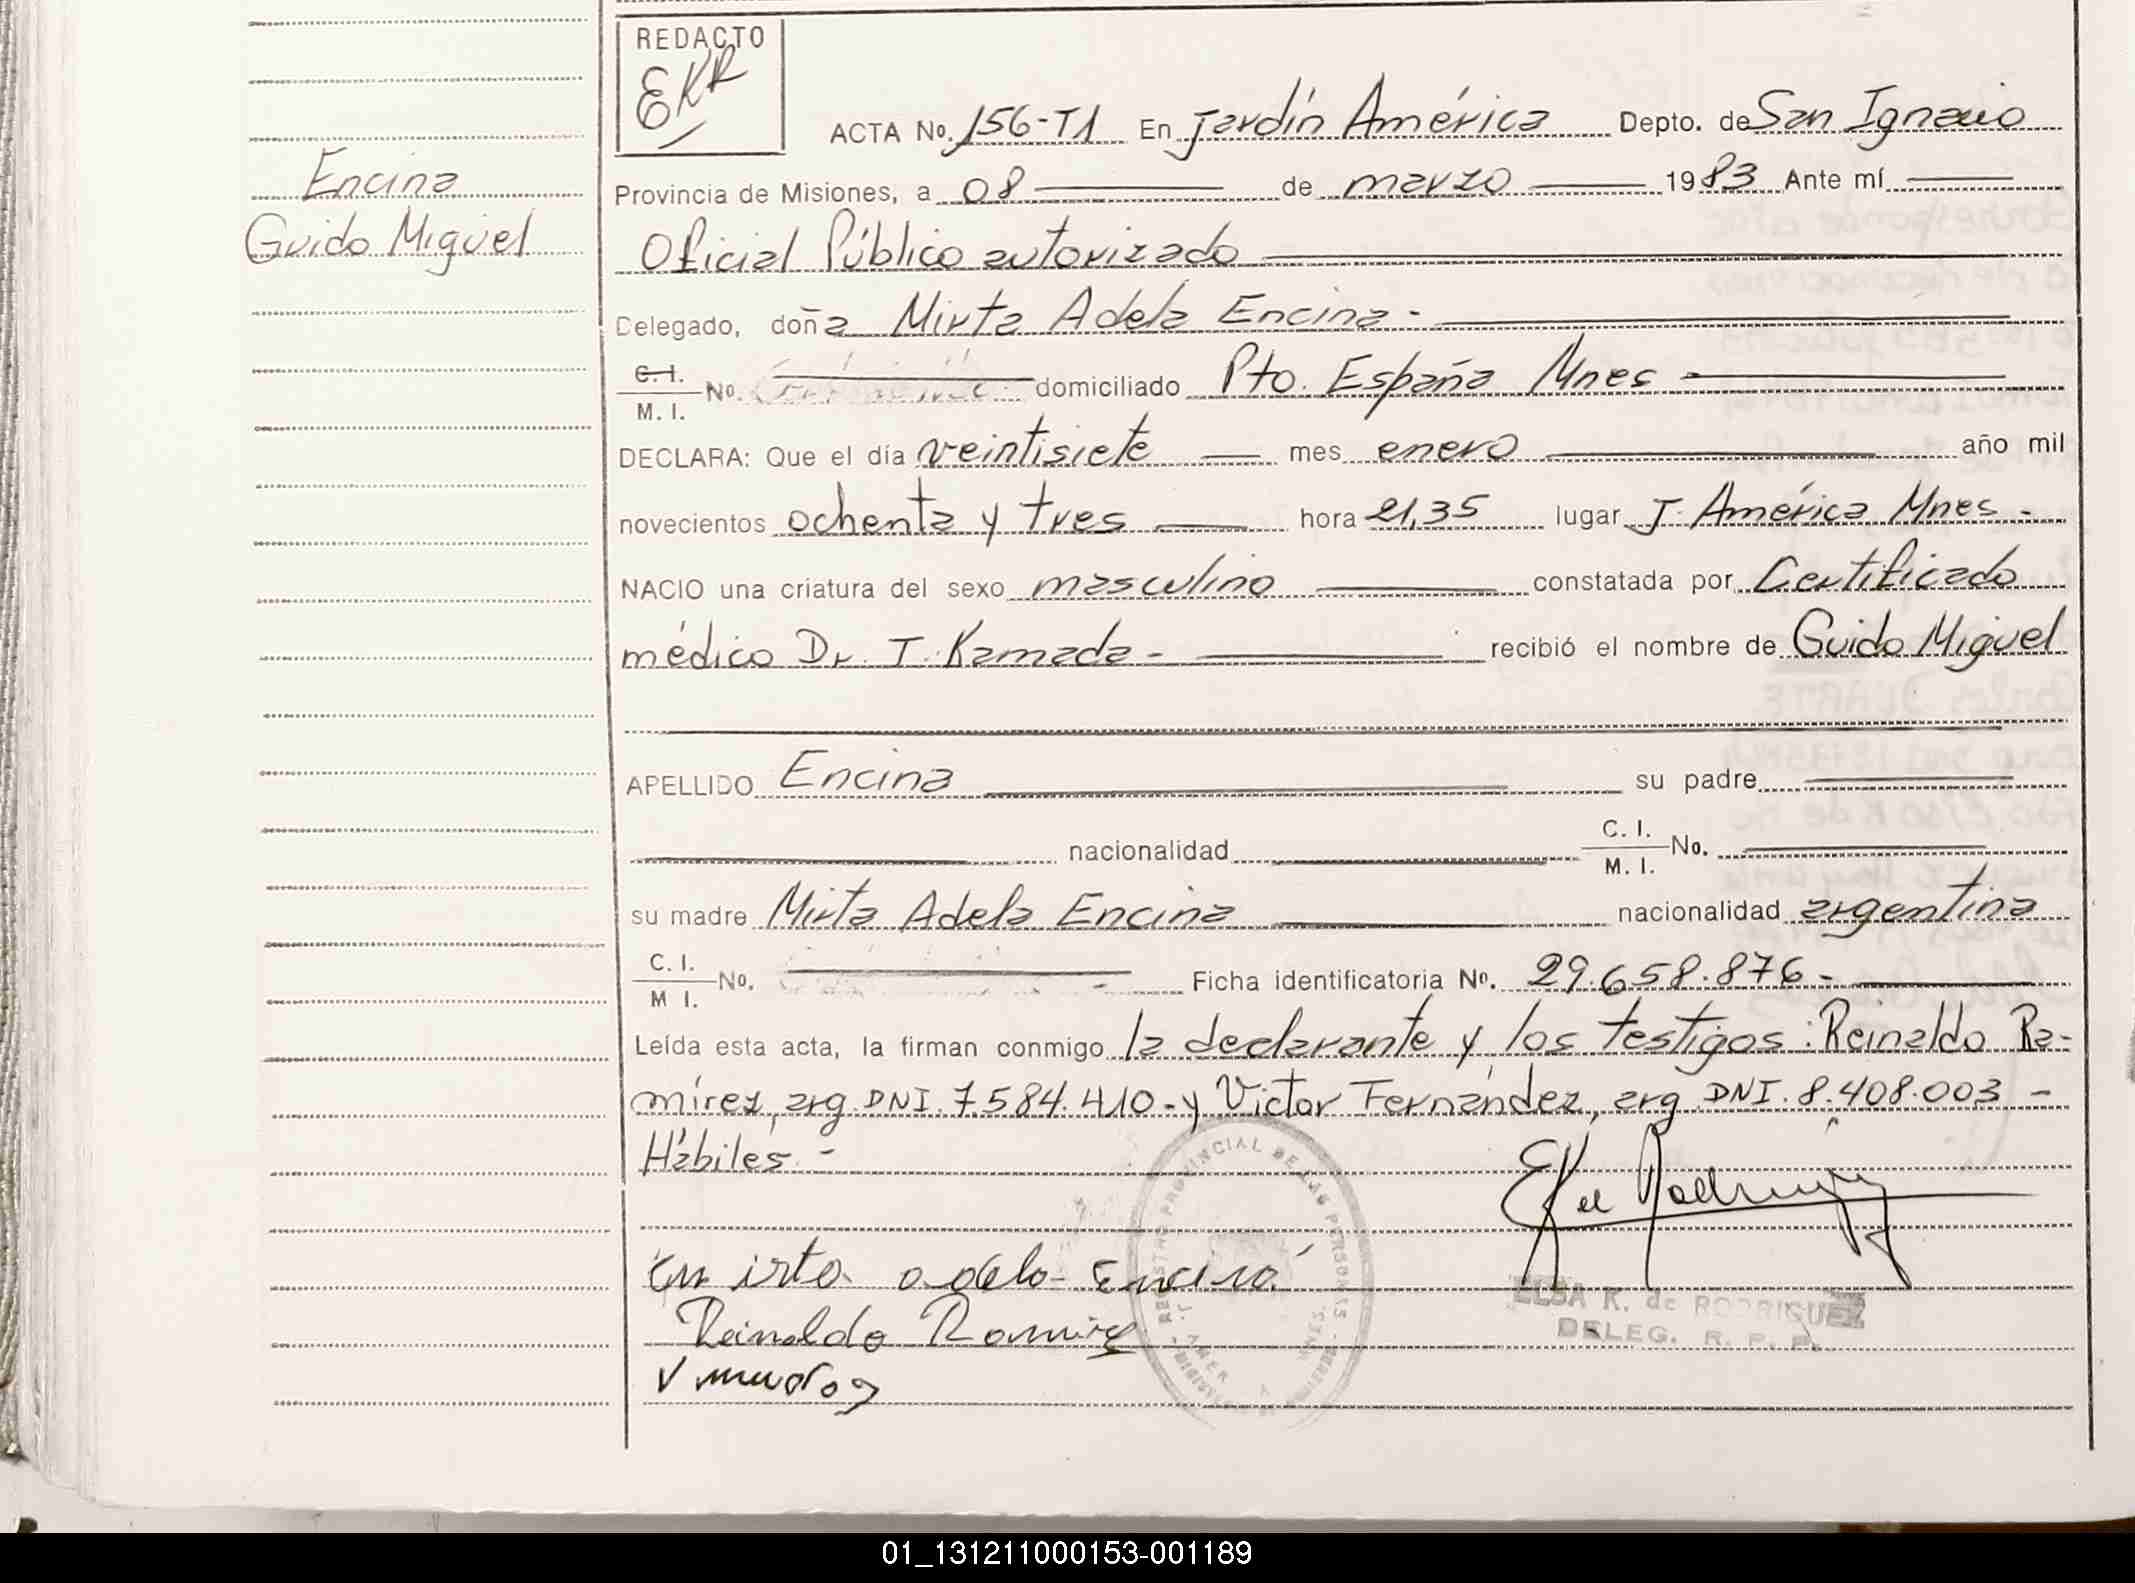 REDACTO
EKR
ACTA No. 156-T1 En Jardín América Depto. de San Ignacio
Encina
Provincia de Misiones, a 08 de marzo 1983 Ante mí
Guido Miguel
Oficial Público autorizado
Delegado, doña Mirta Adela Encina -
C. I.
M. I. No. domiciliado Pto. España Mnes -
DECLARA: Que el día veintisiete mes enero año mil
novecientos ochenta y tres hora 21,35 lugar J. América Mnes -
NACIO una criatura del sexo masculino constatada por Certificado
médico Dr. T. Kamada - recibió el nombre de Guido Miguel
APELLIDO Encina su padre
nacionalidad C. I.
M. I. No.
su madre Mirta Adela Encina nacionalidad argentina
C. I.
M I. No. Ficha identificatoria No. 29.658.876 -
Leída esta acta, la firman conmigo la declarante y los testigos: Reinaldo Ra-
mírez, arg. DNI. 7.584.410 - y Victor Fernández, arg. DNI. 8.408.003 -
Hábiles. -
REGISTRO PROVINCIAL DE LAS PERSONAS
Mirta adela Encina
ELSA K. de RODRIGUEZ
Reinaldo Ramirez
DELEG. R. P. P.
01_131211000153-001189